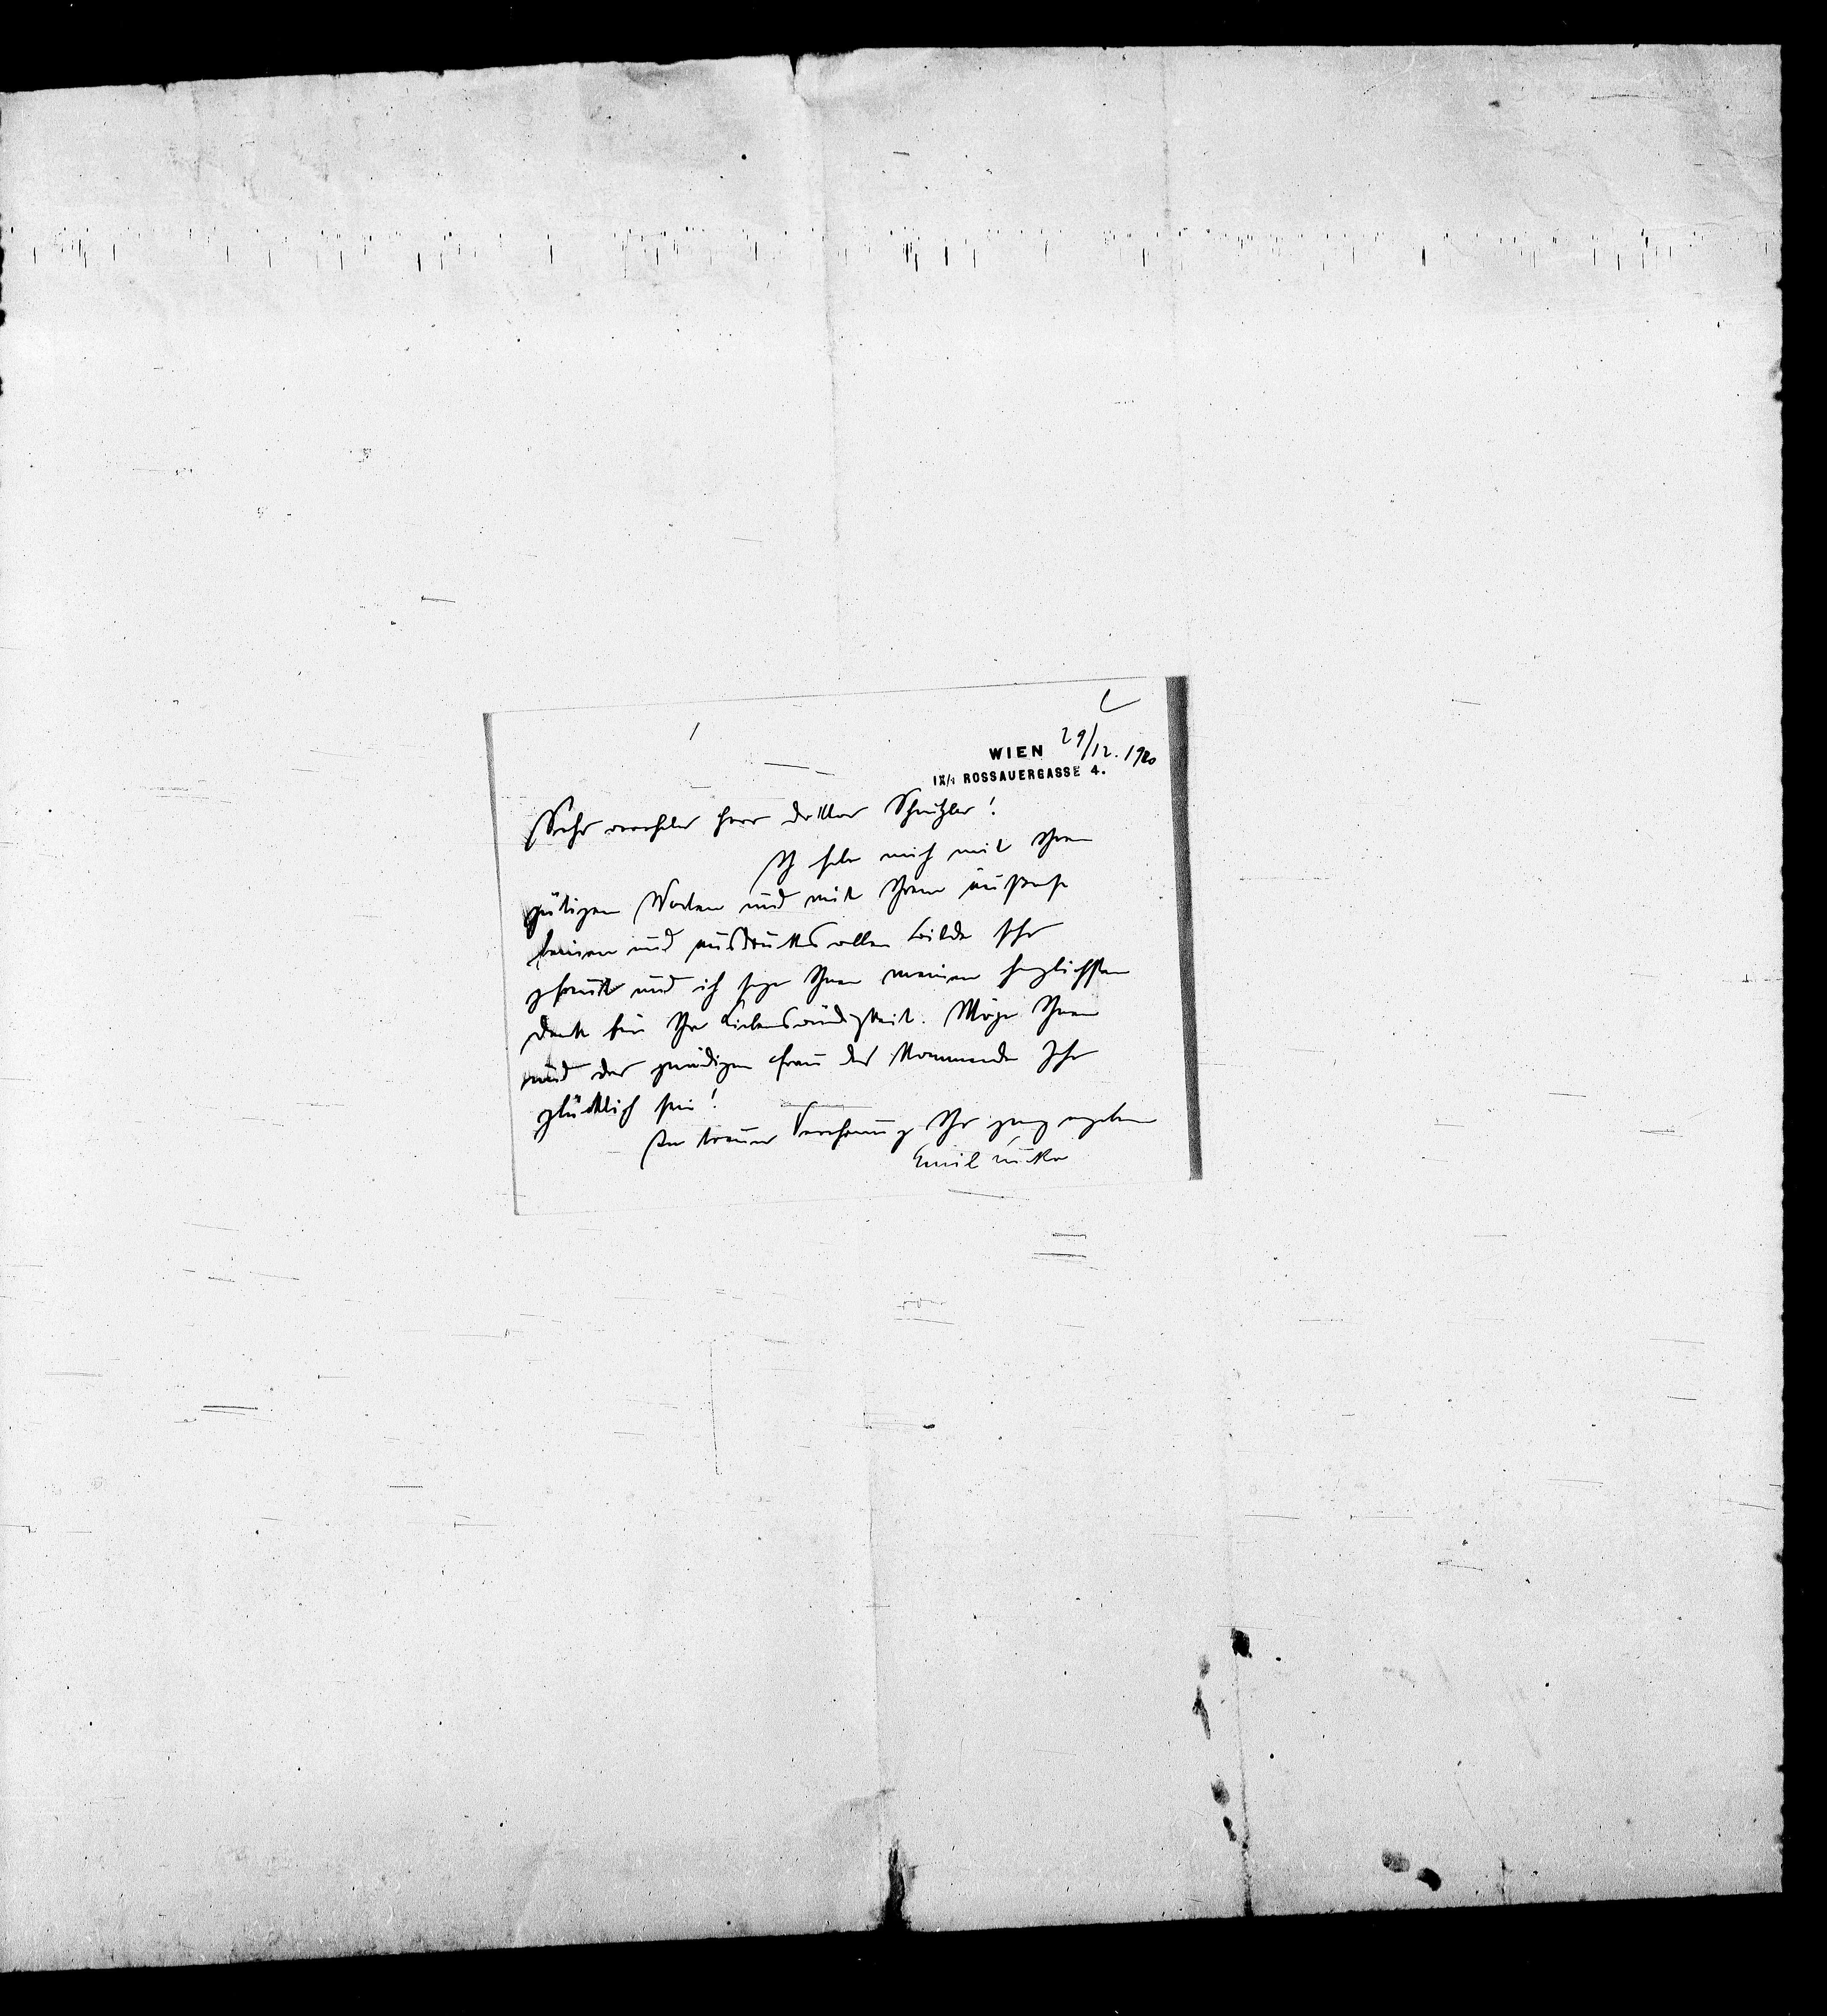 WIEN 29/12. 1920
IX/1 ROSSAUERGASSE 4.
Sehr verehrter Herr Doktor Schnitzler!
Ich habe mich mit Ihren
gütigen Worten und mit Ihrem äußerst
feinen und ausdrucksvollen Bilde sehr
gefreut und ich sage Ihnen meinen herzlichsten
Dank für Ihre Liebenswürdigkeit. Möge Ihnen
und der gnädigen Frau das kommende Jahr
glücklich sein!
In treuer Verehrung Ihr ganz ergebener
Emil Lucka